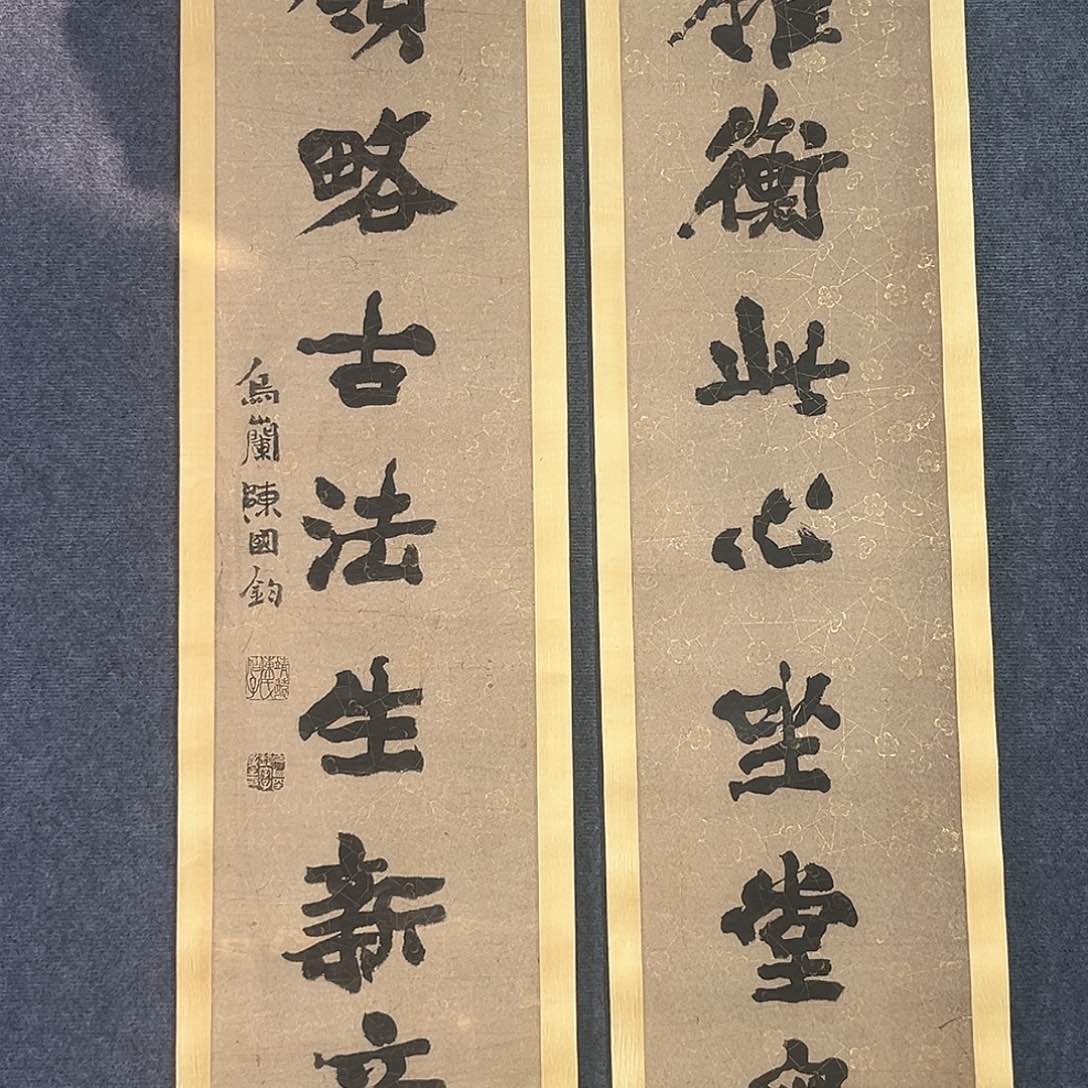 衡此心坐堂
領略古法生新
烏蘭陳國鈞